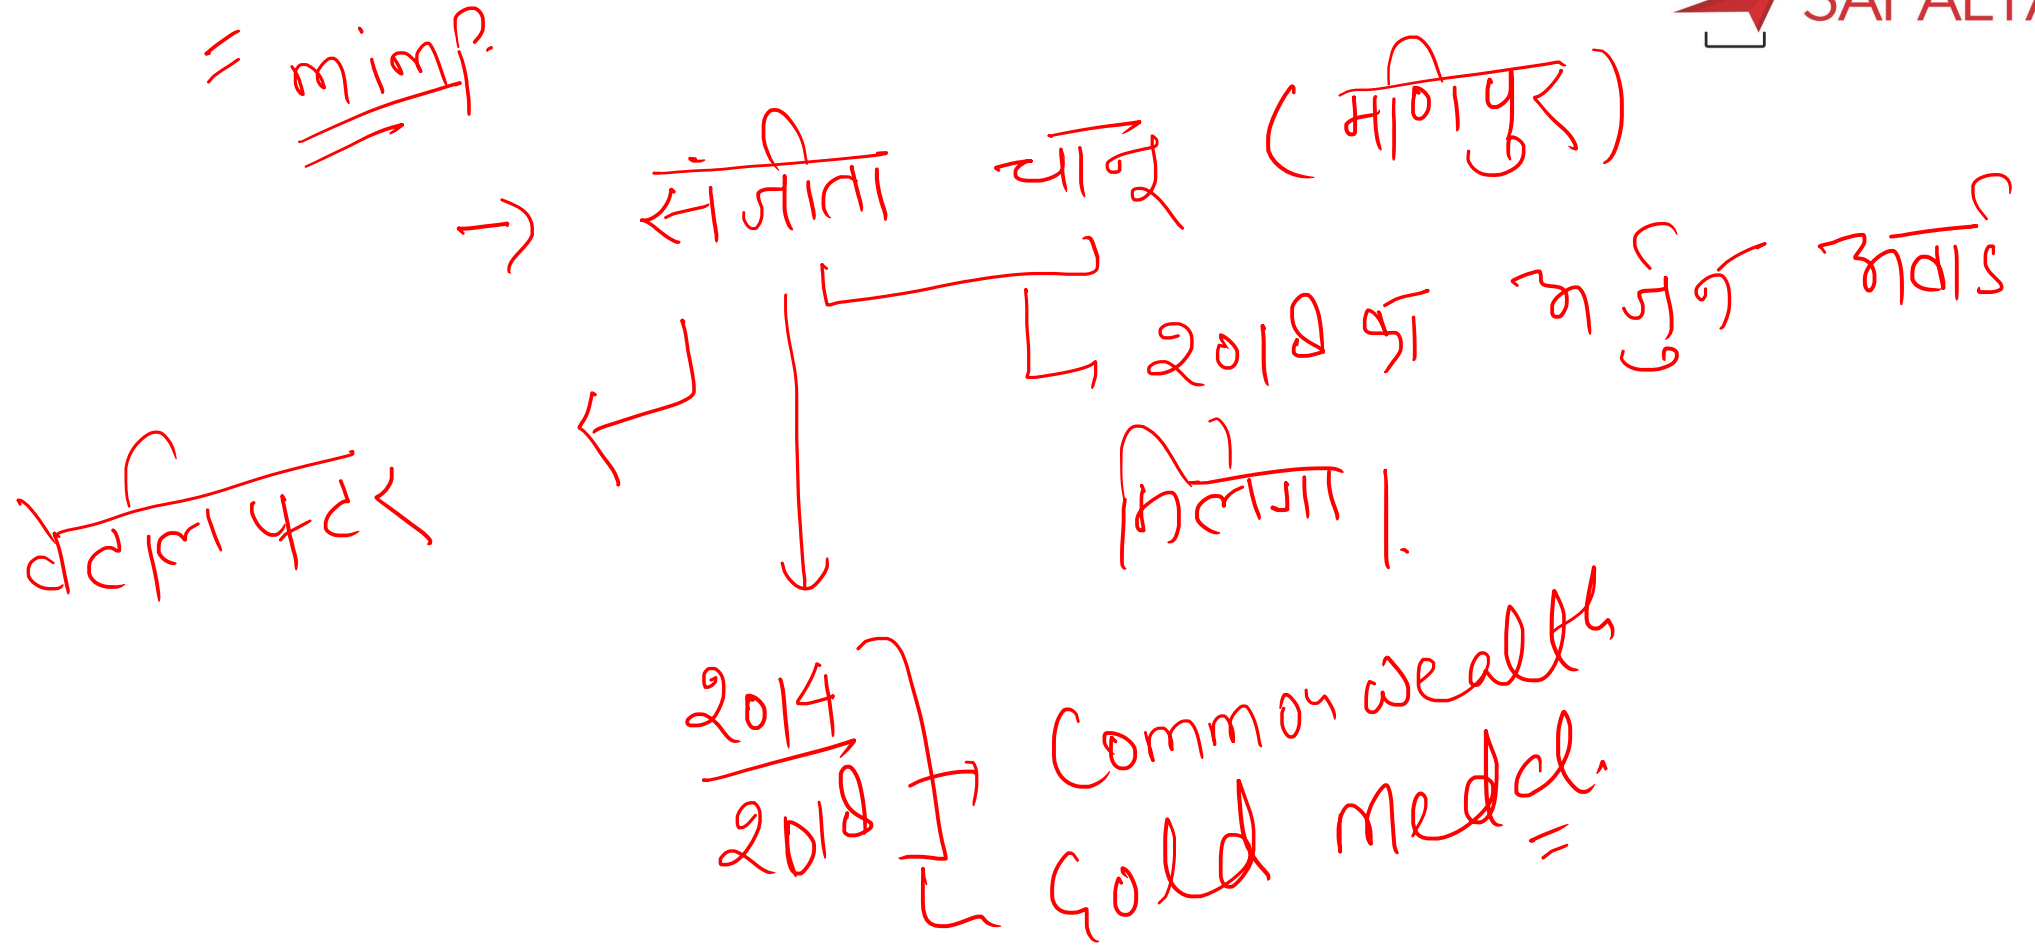 = mimp.
→ संजीता चानू (मणिपुर)
2018 का अर्जुन अवार्ड
मिलेगा |
2014
2018
Commonwealth
Gold medal.